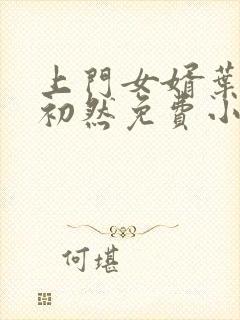 上門女婿葉
初然免費小
何堪